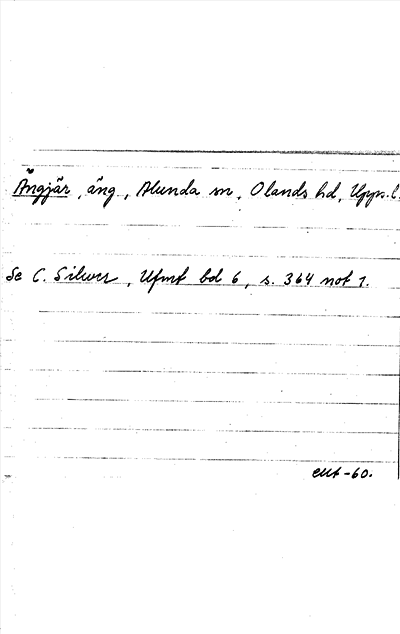 Ängjär, äng, Alunda sn, Olands hd, Upps. l.
Se C. Silwer, Ufmt bd 6, s. 364 not 1.
-60.